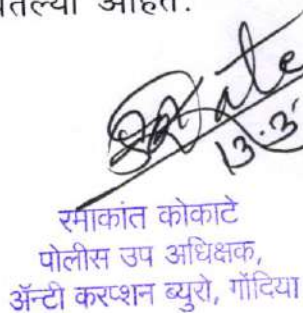 आहेत.
13.3
रमाकांत कोकाटे
पोलीस उप अधिक्षक,
ॲन्टी करप्शन ब्युरो, गोंदिया